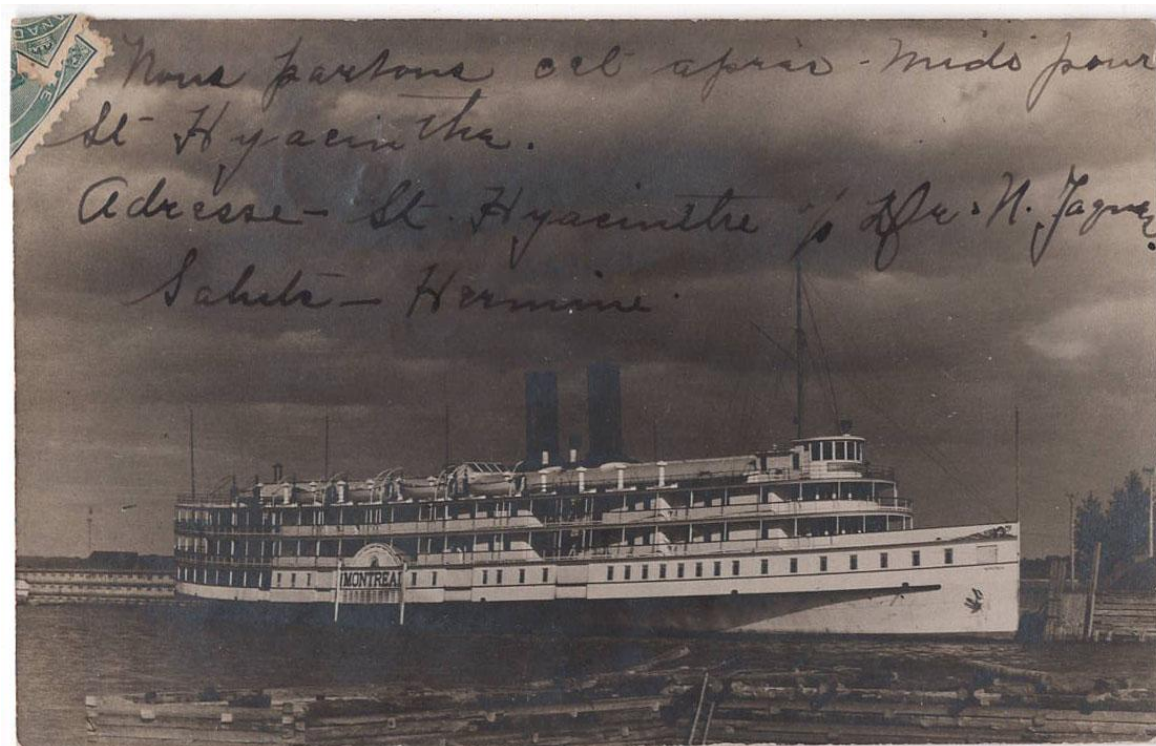 Nous partons cet après-midi pour
St Hyacinthe.
Adresse - St. Hyacinthe c/o Dr. N. Jaques.
Saluts - Hermine.
MONTREAL